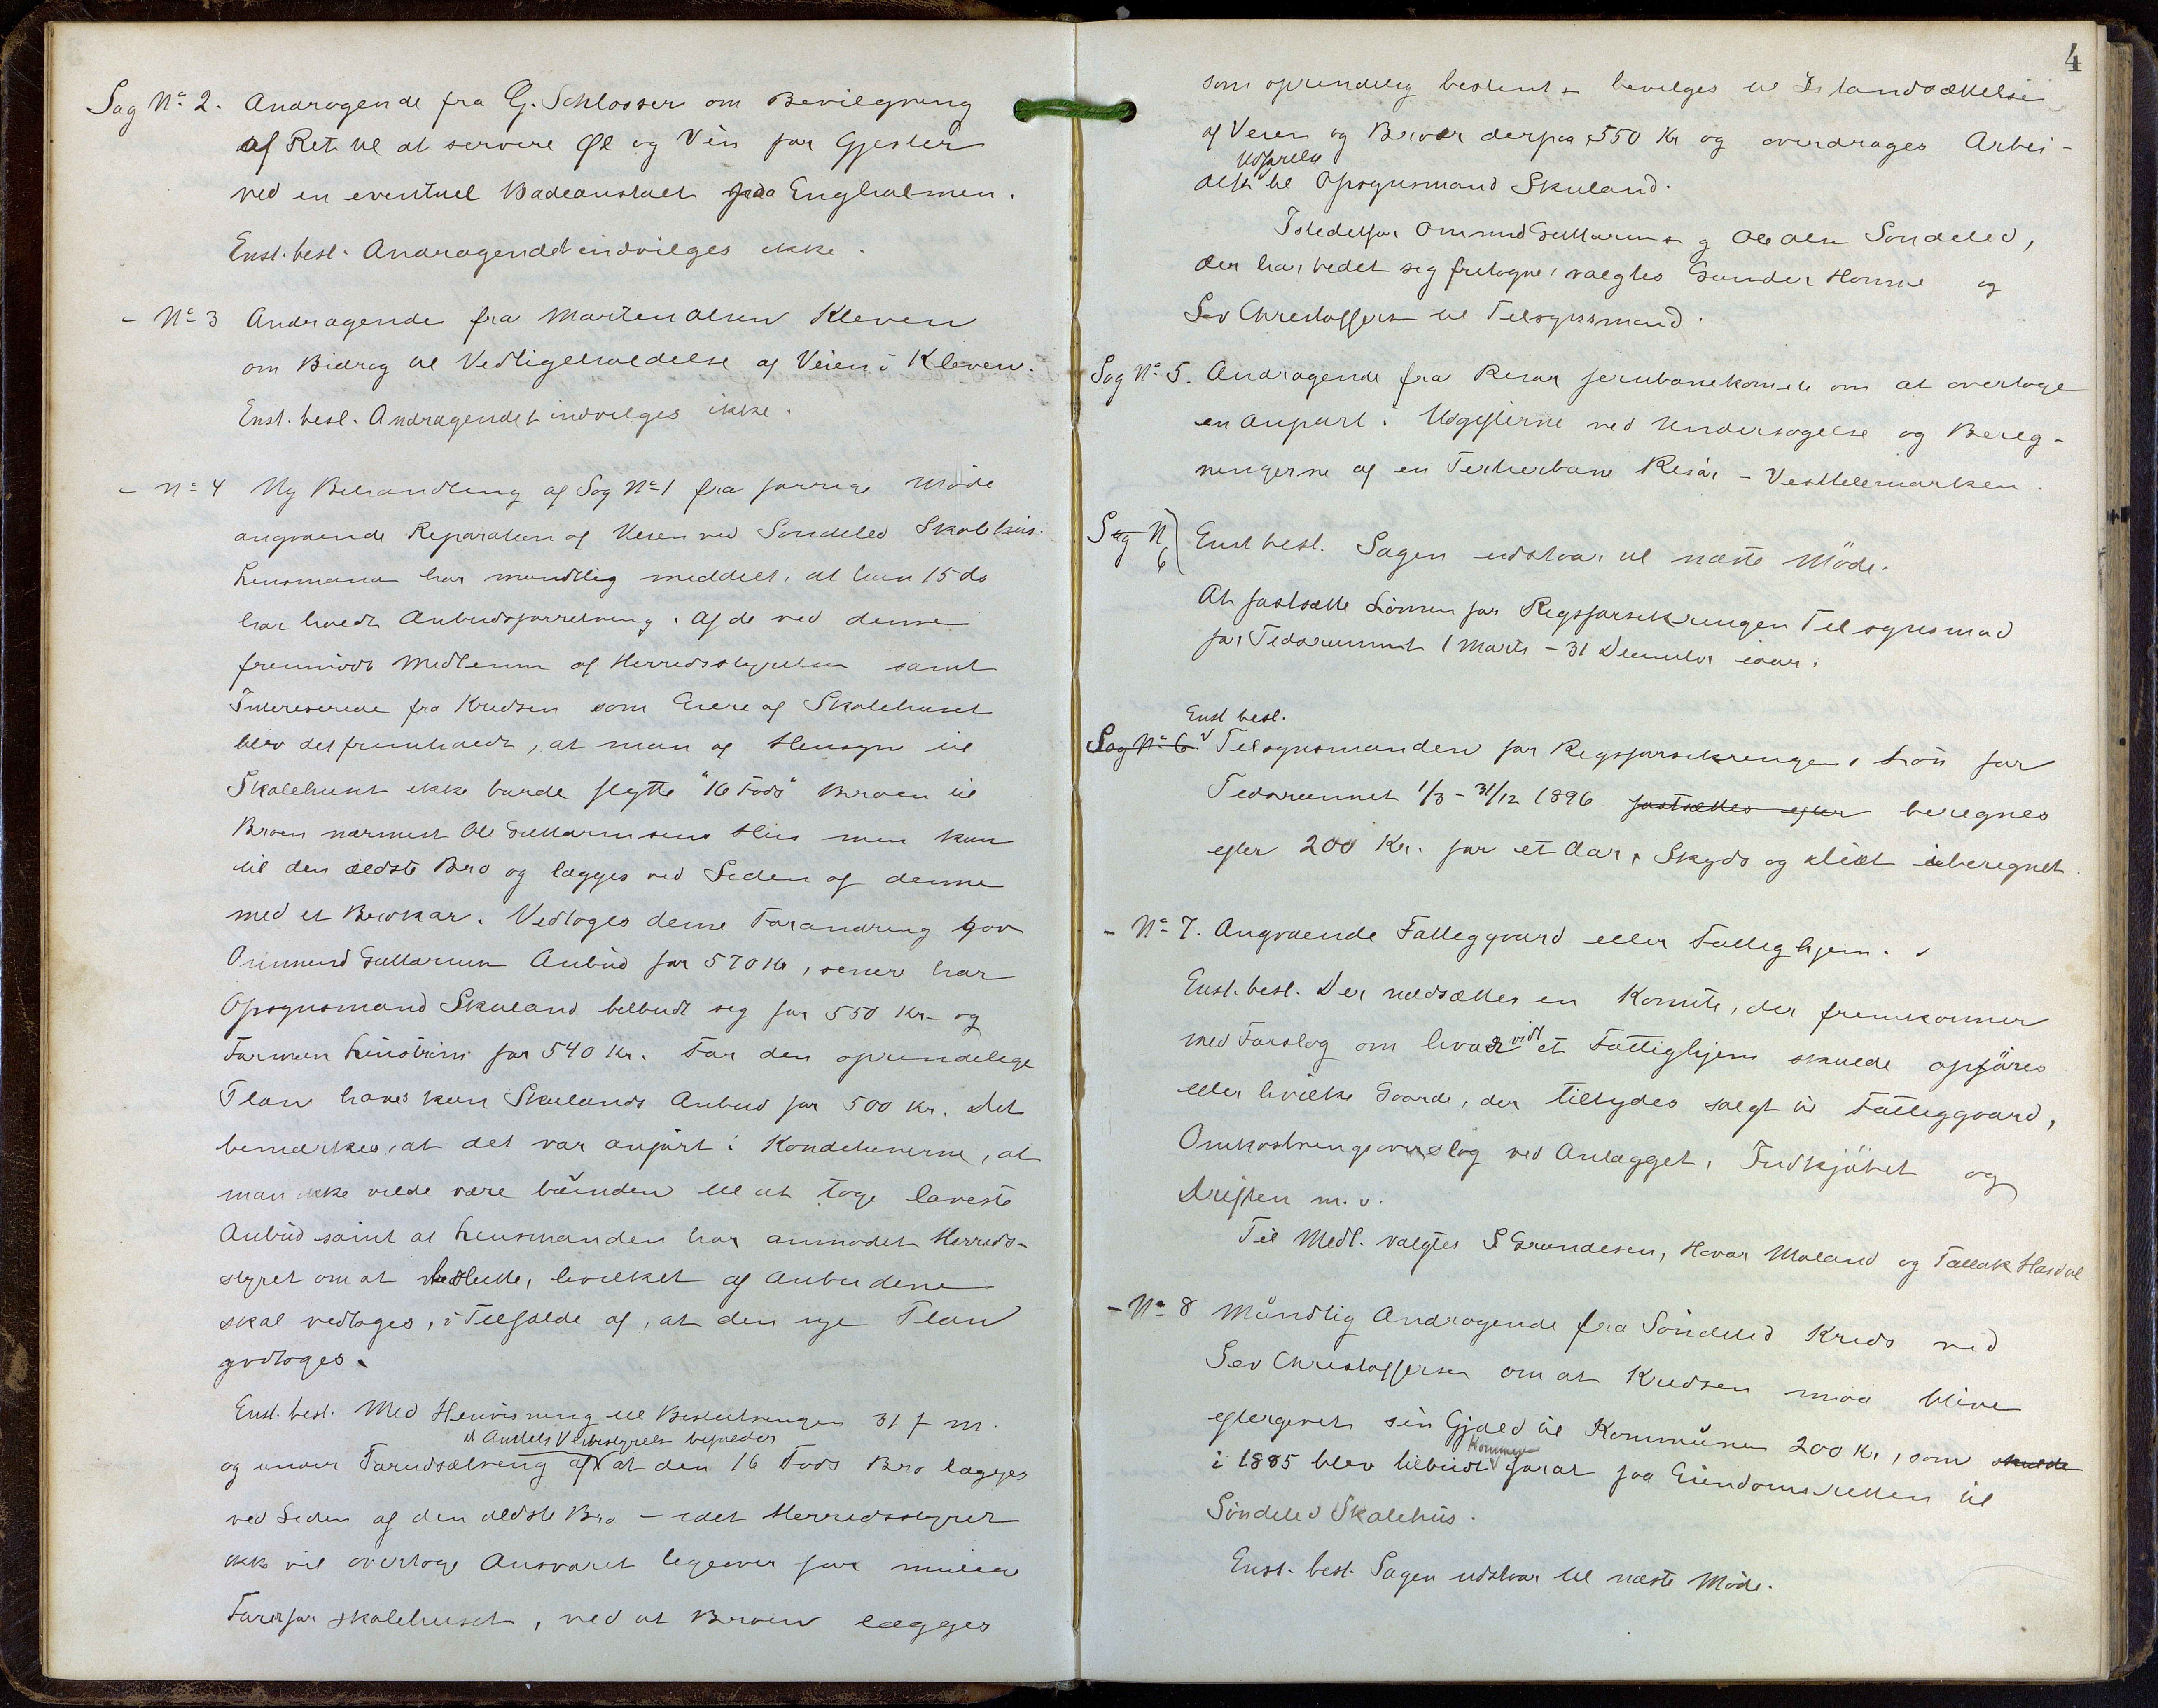 Sag No 2. Andragende fra G. Schlosser om Bevilgning
af Ret til at servere Øl og Vin for Gjester
ved en eventuel Badeanstalt paa Engholmen.
Enst. besl. Andragendet indvilges ikke.
- No 3 Andragende fra Marten Olsen Kleven
om Bidrag til Vedligeholdelse af Veien i Kleven.
Enst. besl. Andragendet indvilges ikke.
- No 4 Ny Behandling af Sag No 1 fra forrige Møde
angaaende Reparation af Veien ved Søndeled Skolehus.
Lensmanden har mundtlig meddelt, at han 15 ds
har holdt Anbudsforretning. Af de ved denne
fremmødte Medlemmer af Herredsstyrelsen samt
Interesserede fra Kredsen som Eiere af Skolehuset
blev det fremholdt, at man af Hensyn til
Skolehuset ikke burde flytte "16 Fods" Broen til
Broen nærmest Ole Guttormsens Hus men kun
til den ældste Bro og lægges ved Siden af denne
med et Brokar. Vedtoges denne Forandring gav
Ommund Guttormsen Anbud for 570 Kr, senere har
Opsynsmand Skuland tilbudt sig for 550 Kr. og
Formann Linström for 540 Kr. For den oprindelige
Plan haves kun Skulands Anbud for 500 Kr. Det
bemærkes, at det var anført i Konditionerne, at
man ikke vilde være bunden til at tage laveste
Anbud samt at Lensmanden har anmodet Herreds-
styret om at beslutte, hvilket af Anbudene
skal vedtages, i Tilfælde af, at den nye Plan
godtages.
Enst. besl. Med Henvisning til Beslutningen 31 f m.
at Amtets Veibestyrelse bifalder
og under Forudsætning af at den 16 Fods Bro lægges
ved Siden af den ældste Bro - idet Herredsstyret
ikke vil overtage Ansvaret ligeover for mulige
Farer for Skolehuset, ved at Broen lægges
4
som oprindelig bestemt - bevilges til Istandsættelse
af Veien og Broer derpaa 550 Kr og overdrages Arbei-
Udførelse
dets til Opsynsmand Skuland.
Istedetfor Ommund Guttormsen og Ole Olsen Søndeled,
der har bedet sig fritagne, valgtes Gunder Homme og
Sev Christoffersen til Tilsynsmænd.
Sag No 5. Andragende fra Risør Jernbanekomite om at overtage
en Anpart i Udgifterne ved Undersøgelse og Bereg-
ningerne af en Tertierbane Risør - Vesttelemarken.
Sag N 6
Enst besl. Sagen udstaar til næste Møde.
At fastsætte Lønnen for Rigsforsikringen Tilsynsmænd
for Tidsrummet 1 Marts - 31 December iaar.
Enst besl.
Sag No 6. Tilsynsmanden for Rigsforsikringens Løn for
Tidsrummet 1/3 - 31/12 1896 fastsættes efter beregnes
efter 200 Kr. for et Aar, Skyds og Diæt iberegnet.
- No 7. Angaaende Fattiggaard eller Fattighjem.
Enst. besl. Der nedsættes en Komite, der fremkommer
med Forslag om hvorvidt et Fattighjem skulde opføres
eller hvilke Gaarde, der tilbydes solgt til Fattiggaard,
Omkostningsoverslag ved Anlægget, Indkjøbet og
Driften m. v.
Til Medl. valgtes S Grundesen, Havar Moland og Tallak Hasdal
- No 8 Mundtlig Andragende fra Søndeled Kreds ved
Sev Christoffersen om at Kredsen maa blive
eftergivet sin Gjæld til Kommunen 200 Kr, som skulde
Kommunen
i 1885 blev tilbudt for at faa Eiendomsretten til
Søndeled Skolehus.
Enst. besl. Sagen udstaar til næste Møde.